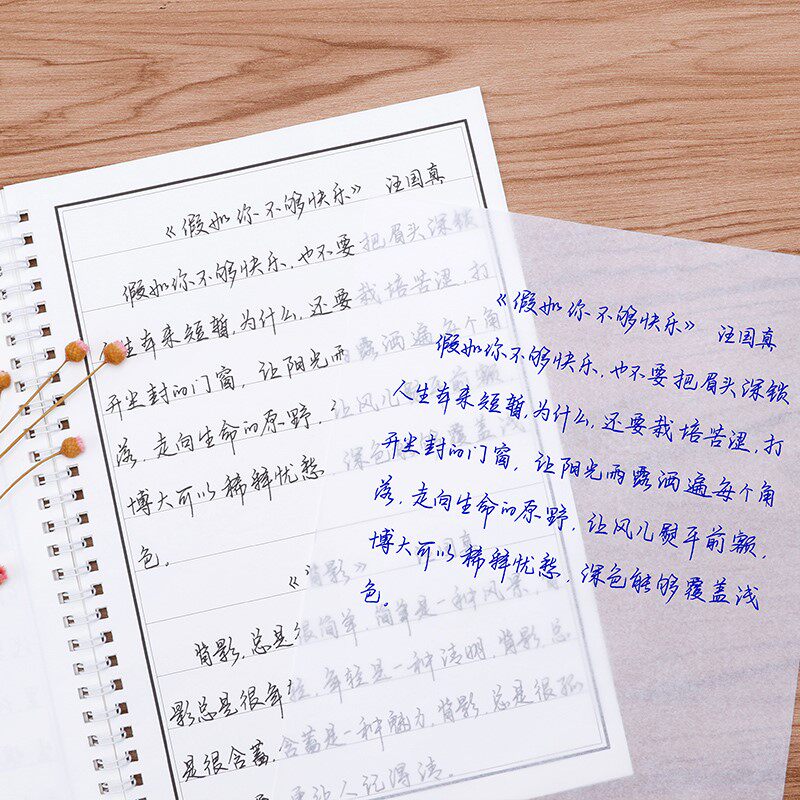 《假如你不够快乐》 汪国真
假如你不够快乐,也不要把眉头深锁
人生本来短暂,为什么,还要栽培苦涩,打
开尘封的门窗,让阳光雨露洒遍每个角
落,走向生命的原野,让风儿熨平前额,
博大可以稀释忧愁,深色能够覆盖浅
色。
《背影》 汪国真
背影,总是很简单,简单是一种风景,
影总是很年轻,年轻是一种清明,背影,总
是很含蓄,含蓄是一种魅力,背影,总是很孤
更让人记得清。
《假如你不够快乐》 汪国真
假如你不够快乐,也不要把眉头深锁
人生本来短暂,为什么,还要栽培苦涩,打
开尘封的门窗,让阳光雨露洒遍每个角
落,走向生命的原野,让风儿熨平前额,
博大可以稀释忧愁,深色能够覆盖浅
色。